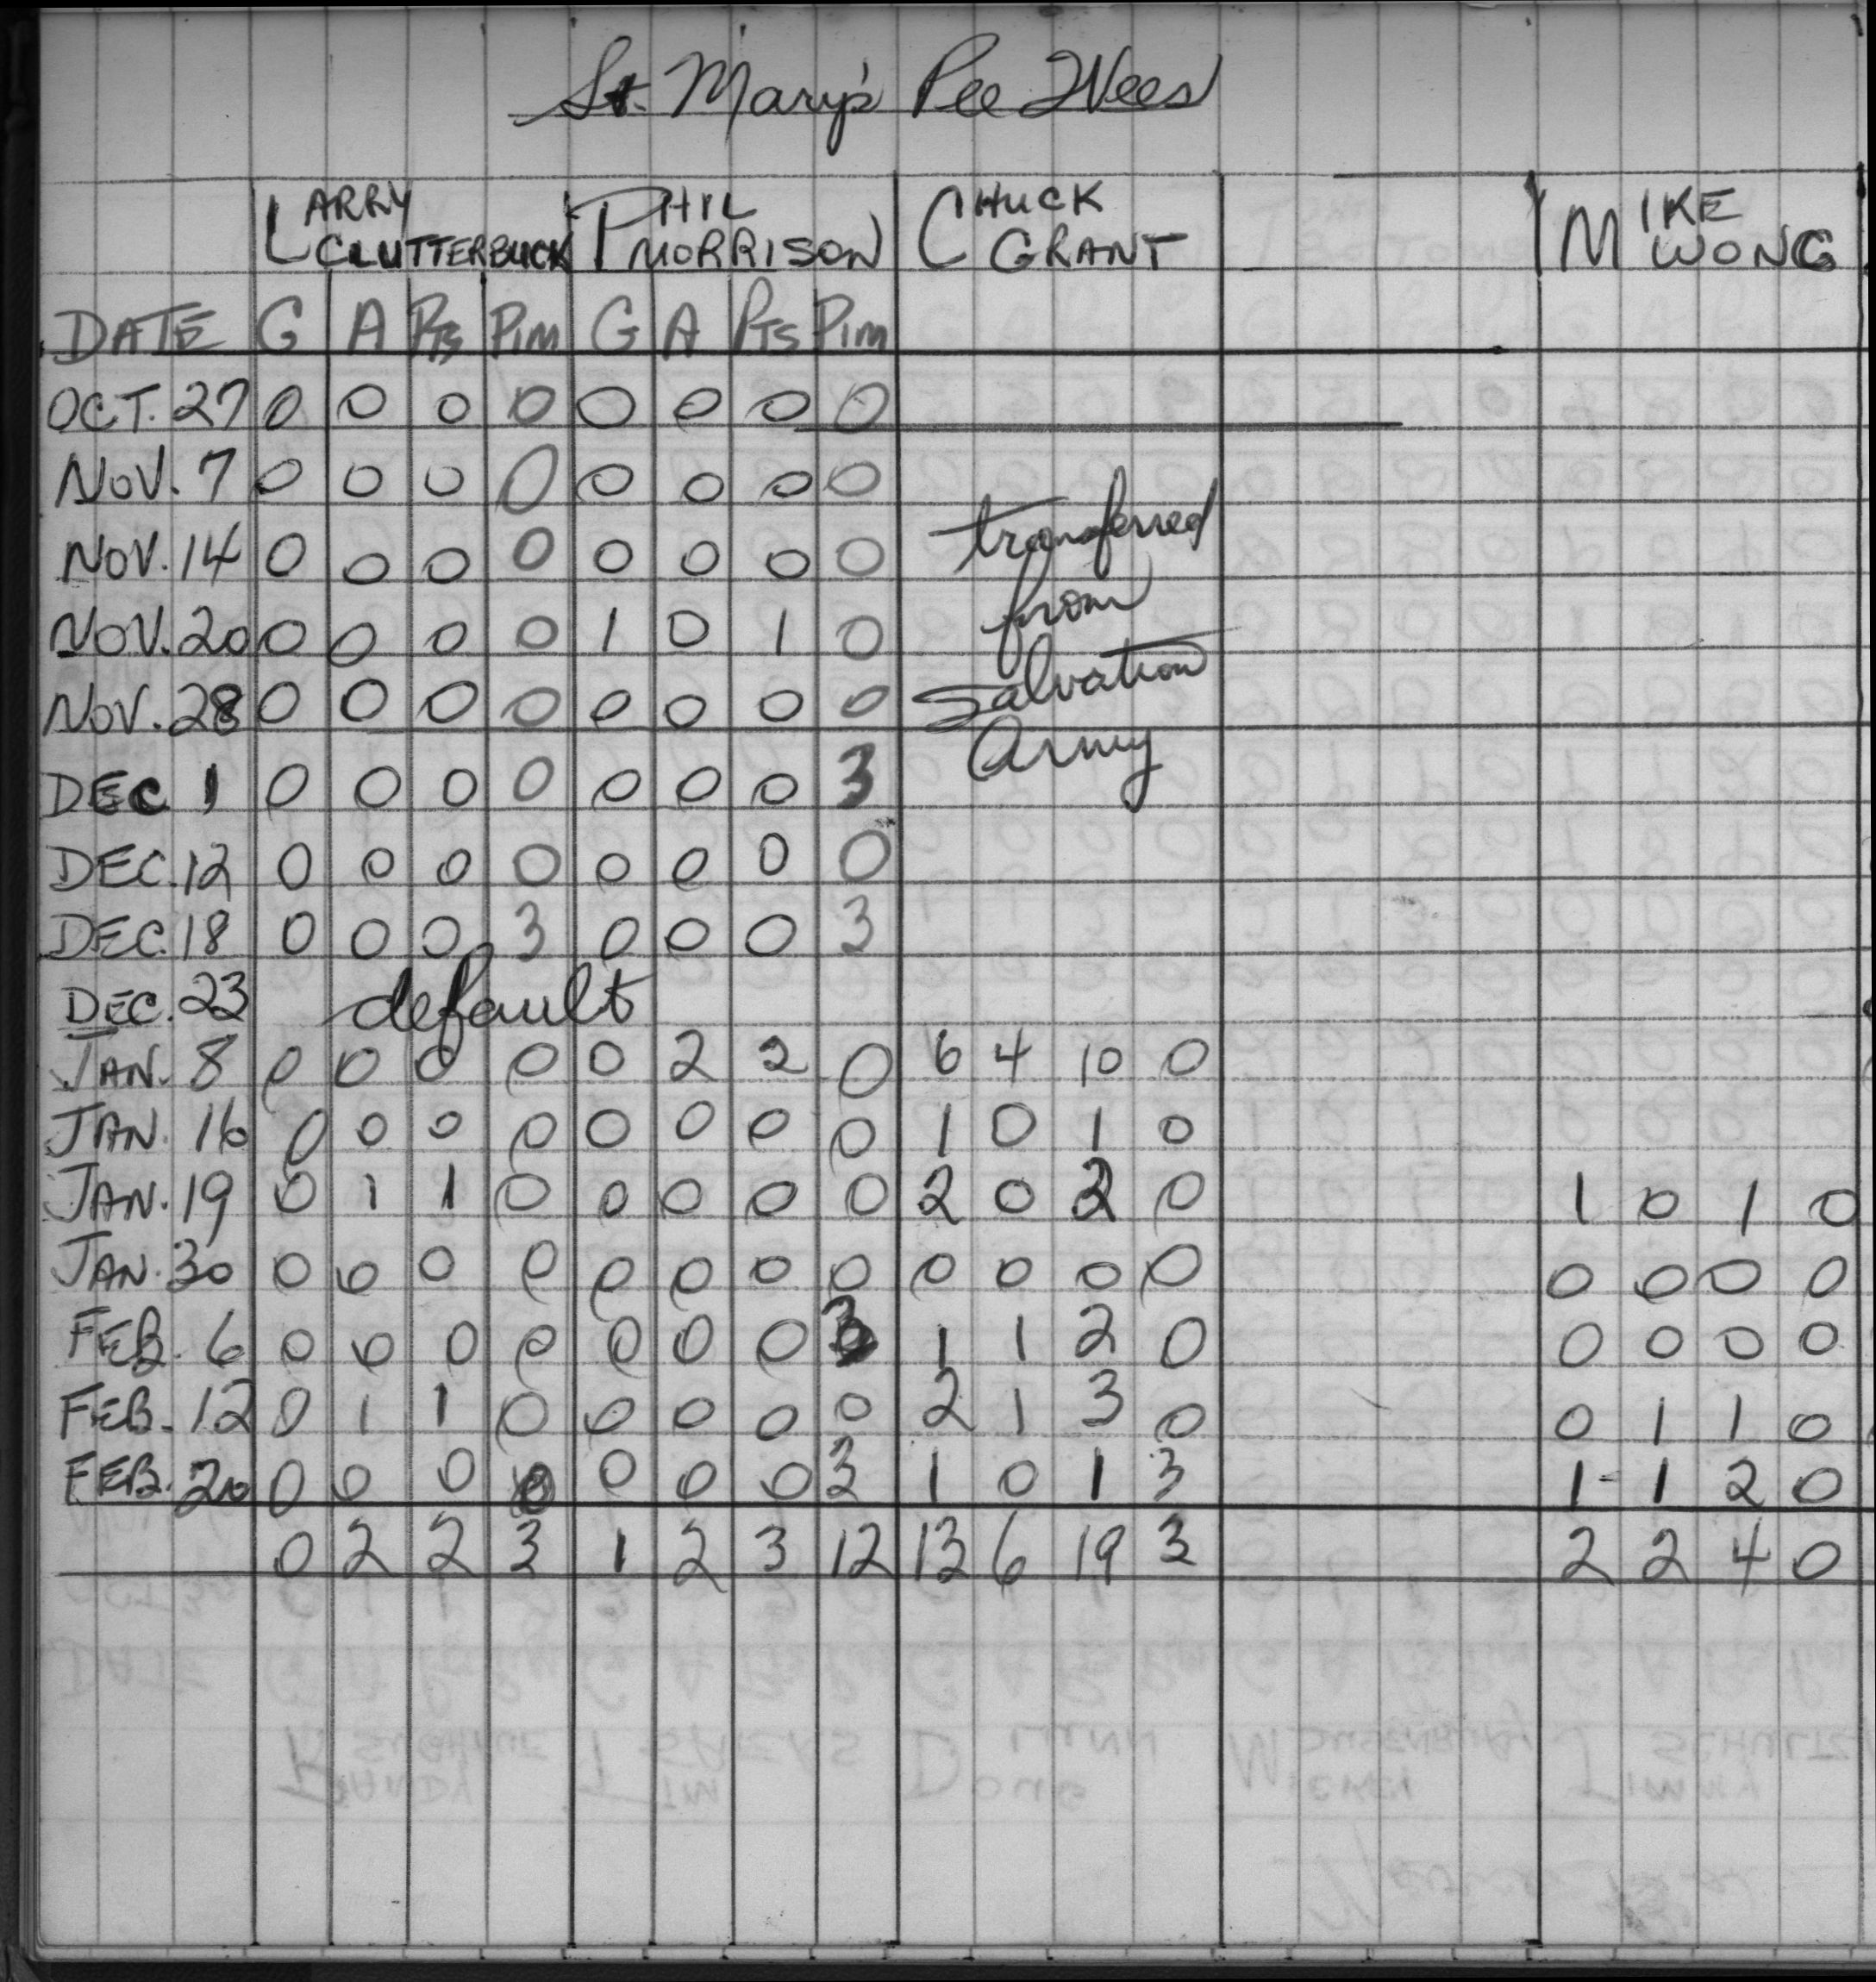 St. Mary's Pee Wees
LARRY CLUTTERBUCK PHIL MORRISON CHUCK GRANT MIKE WONG
DATE G A Pts Pim G A Pts Pim
OCT. 27 0 0 0 0 0 0 0 0
NOV. 7 0 0 0 0 0 0 0 0
NOV. 14 0 0 0 0 0 0 0 0
NOV. 20 0 0 0 0 1 0 1 0
NOV. 28 0 0 0 0 0 0 0 0
DEC 1 0 0 0 0 0 0 0 3
DEC. 12 0 0 0 0 0 0 0 0
DEC. 18 0 0 0 3 0 0 0 3
transferred
from
Salvation
Army
DEC. 23 default
JAN. 8 0 0 0 0 0 2 2 0 6 4 10 0
JAN. 16 0 0 0 0 0 0 0 0 1 0 1 0
JAN. 19 0 1 1 0 0 0 0 0 2 0 2 0 1 0 1 0
JAN. 30 0 0 0 0 0 0 0 0 0 0 0 0 0 0 0 0
FEB. 6 0 0 0 0 0 0 0 3 1 1 2 0 0 0 0 0
FEB. 12 0 1 1 0 0 0 0 0 2 1 3 0 0 1 1 0
FEB. 20 0 0 0 0 0 0 0 3 1 0 1 3 1 1 2 0
0 2 2 3 1 2 3 12 13 6 19 3 2 2 4 0